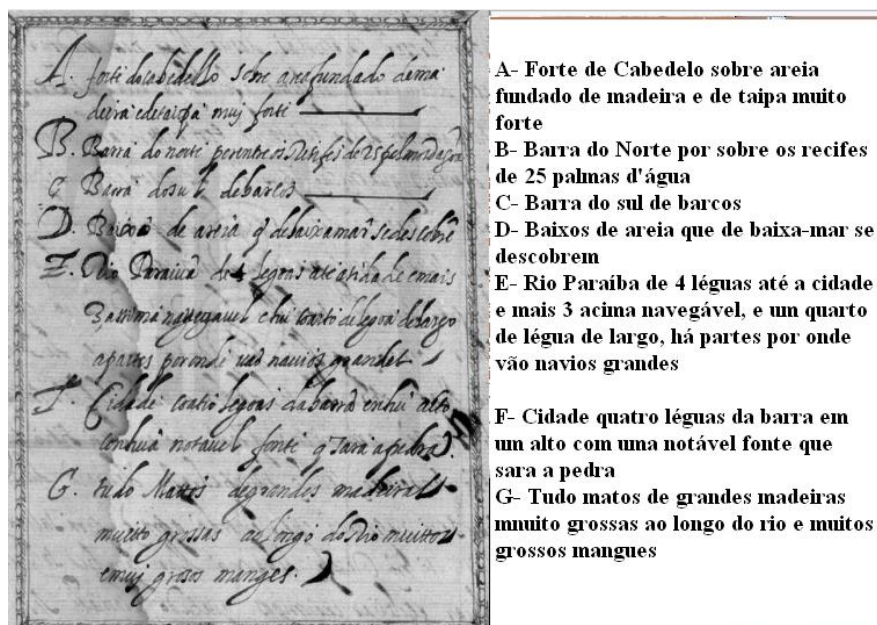 A. forte do cabedello sobre area fundado dema
deira e detaipa muj forte
B. Barra do norte per entre os Recifes de 25 palmos dagoa
C Barra do sul de barcos
D. Baixos de areia q debaixamar sedescobrẽ
E. Rio Paraiva de 4 legoas ate a cidade e mais
3 assima navegavel e hũ coarto de legoa de largo
a partes por onde vaõ navios grandes
F. Cidade coatro legoas da barra en hũ alto
con hũa notavel fonte q sara a pedra
G. tudo Mattos de grandes madeiras
muitto grossas ao longo do Rio muittos
e muj grosos manges.
A- Forte de Cabedelo sobre areia
fundado de madeira e de taipa muito
forte
B- Barra do Norte por sobre os recifes
de 25 palmas d'água
C- Barra do sul de barcos
D- Baixos de areia que de baixa-mar se
descobrem
E- Rio Paraíba de 4 léguas até a cidade
e mais 3 acima navegável, e um quarto
de légua de largo, há partes por onde
vão navios grandes
F- Cidade quatro léguas da barra em
um alto com uma notável fonte que
sara a pedra
G- Tudo matos de grandes madeiras
mnuito grossas ao longo do rio e muitos
grossos mangues